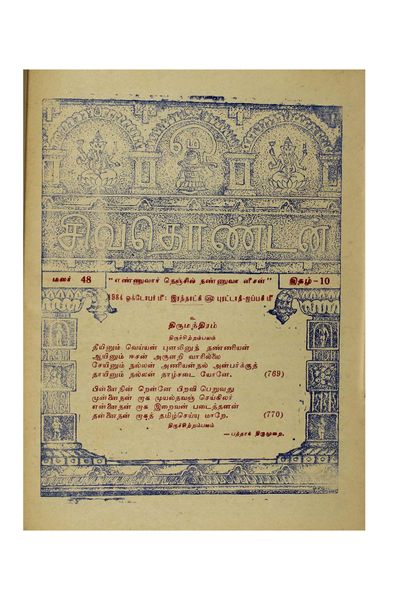 சிவதொண்டன்
மலர் 48
"எண்ணுவார் நெஞ்சில் நண்ணுவா னீசன்"
இதழ்-10
1984 ஒக்டோபர் மீ: இரத்தாட்சி ௵ புரட்டாதி-ஐப்பசி மீ
உ
திருமந்திரம்
திருச்சிற்றம்பலம்
தீயினும் வெய்யன் புனலினுந் தண்ணியன்
ஆயினும் ஈசன் அருளறி வாரில்லை
சேயினும் நல்லன் அணியன்நல் அன்பர்க்குத்
தாயினும் நல்லன் தாழ்சடை யோனே. (769)
பின்னைநின் றென்னே பிறவி பெறுவது
முன்னைநன் றாக முயல்தவஞ் செய்கிலர்
என்னைநன் றாக இறைவன் படைத்தனன்
தன்னைநன் றாகத் தமிழ்செய்யு மாறே. (770)
திருச்சிற்றம்பலம்
— பத்தாந் திருமுறை.